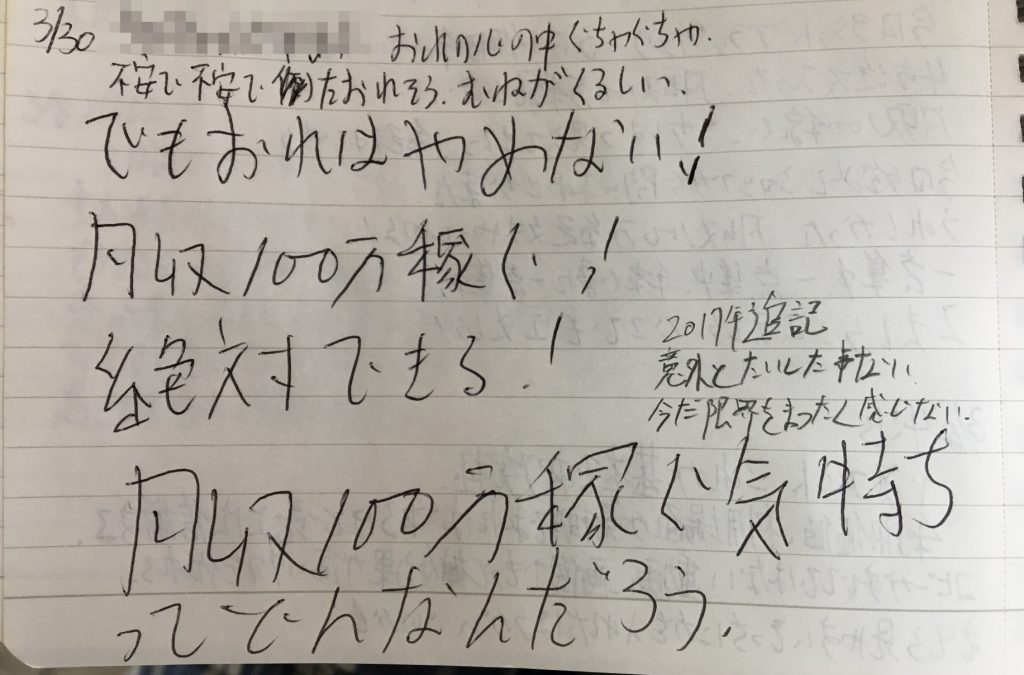 3/30 おれの心の中ぐちゃぐちゃ.
不安で不安でたおれそう.むねがくるしい.
でもおれはやめない!
月収100万稼ぐ!
絶対できる!
2017年追記
意外とたいした事ない.
今だ限界をまったく感じない.
月収100万稼ぐ気持ち
ってどんなんだろう.